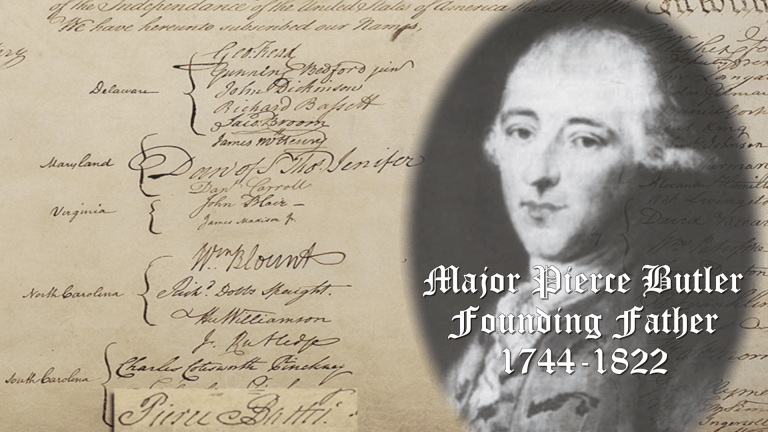 of the Independence of the United States of America
We have hereunto subscribed our Names,
Delaware
Geo: Read
Gunning Bedford jun
John Dickinson
Richard Bassett
Jaco: Broom
Maryland
James McHenry
Dan of St Thos Jenifer
Danl Carroll
Virginia
John Blair —
James Madison Jr.
North Carolina
Wm Blount
Richd. Dobbs Spaight.
Hu Williamson
South Carolina
J. Rutledge
Charles Cotesworth Pinckney
Pierce Butler.
Major Pierce Butler
Founding Father
1744-1822